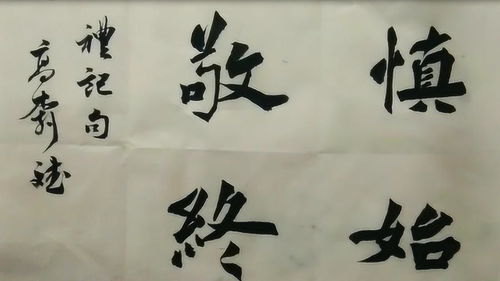 慎始
敬終
禮記句
高